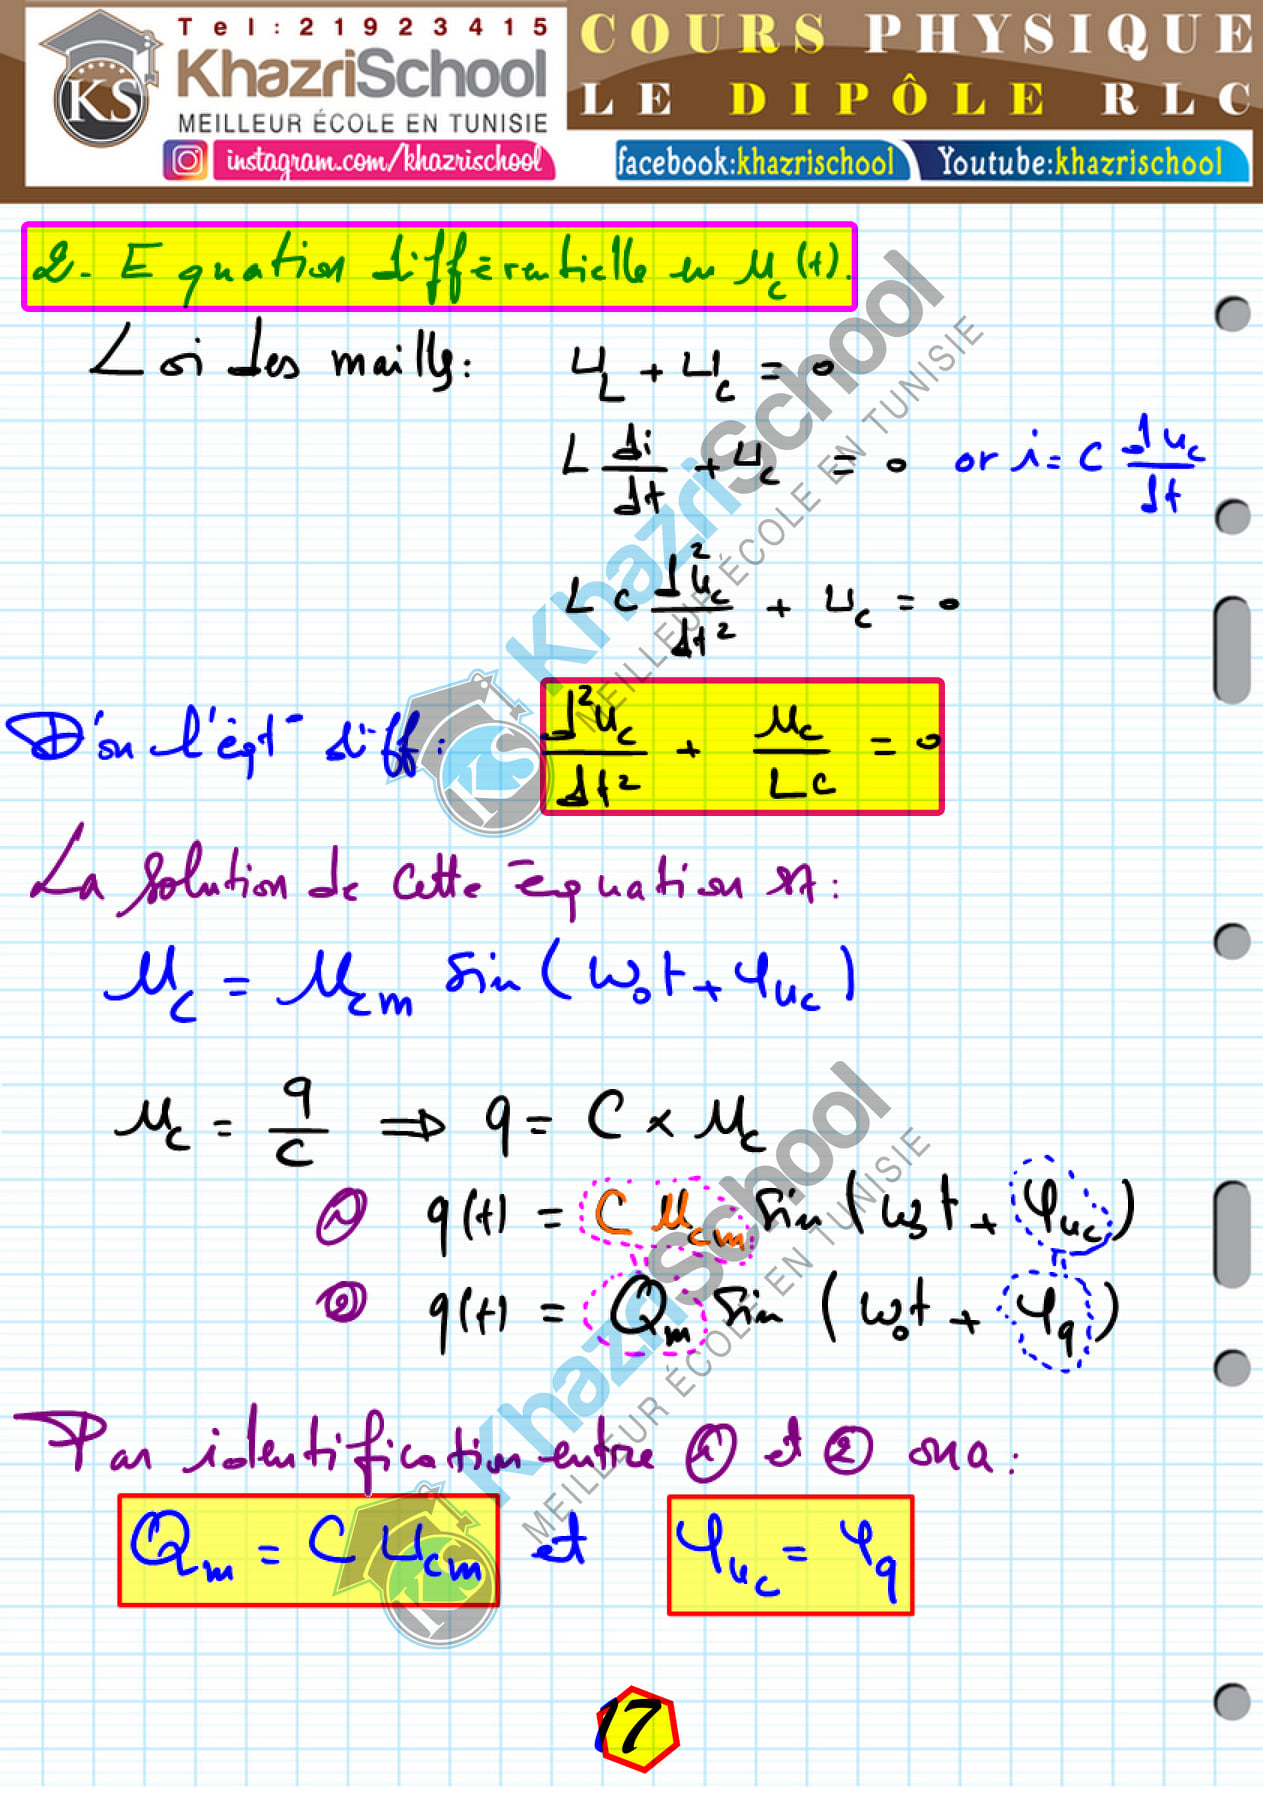 Tel:21923415
KhazriSchool
KS
MEILLEUR ÉCOLE EN TUNISIE
instagram.com/khazrischool
COURS PHYSIQUE
LE DIPÔLE RLC
facebook:khazrischool
Youtube:khazrischool
2- Equation différentielle en u_c(t).
Loi des mailles: u_L + u_c = 0
L di/dt + u_c = 0 or i = C du_c/dt
LC d²u_c/dt² + u_c = 0
D'où l'éqt° diff: d²u_c/dt² + u_c/LC = 0
La solution de cette équation est:
u_c = u_cm sin(ω₀t + φ_uc)
u_c = q/C ⇒ q = C × u_c
① q(t) = C u_cm sin(ω₀t + φ_uc)
② q(t) = Q_m sin(ω₀t + φ_q)
Par identification entre ① et ② on a:
Q_m = C u_cm et φ_uc = φ_q
17
KhazriSchool
MEILLEUR ÉCOLE EN TUNISIE
KS
KhazriSchool
MEILLEUR ÉCOLE EN TUNISIE
KS